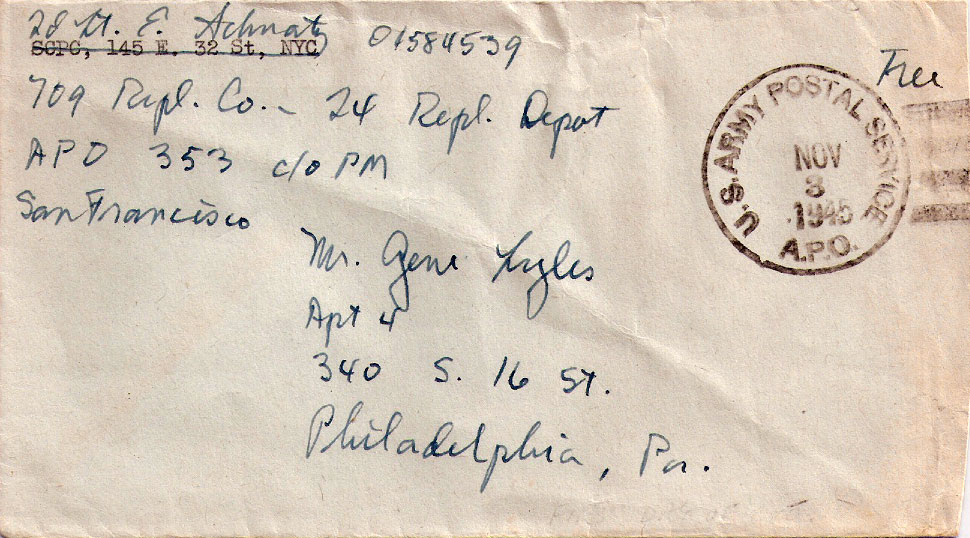 2d Lt. E. Schnatz 01584539
SCPC, 145 E. 32 St, NYC
709 Repl. Co. - 24 Repl. Depot
APO 353 c/o PM
San Francisco
Free
U.S. ARMY POSTAL SERVICE
NOV
3
1945
A.P.O.
Mr. Gene Lyles
Apt 4
340 S. 16 St.
Philadelphia, Pa.